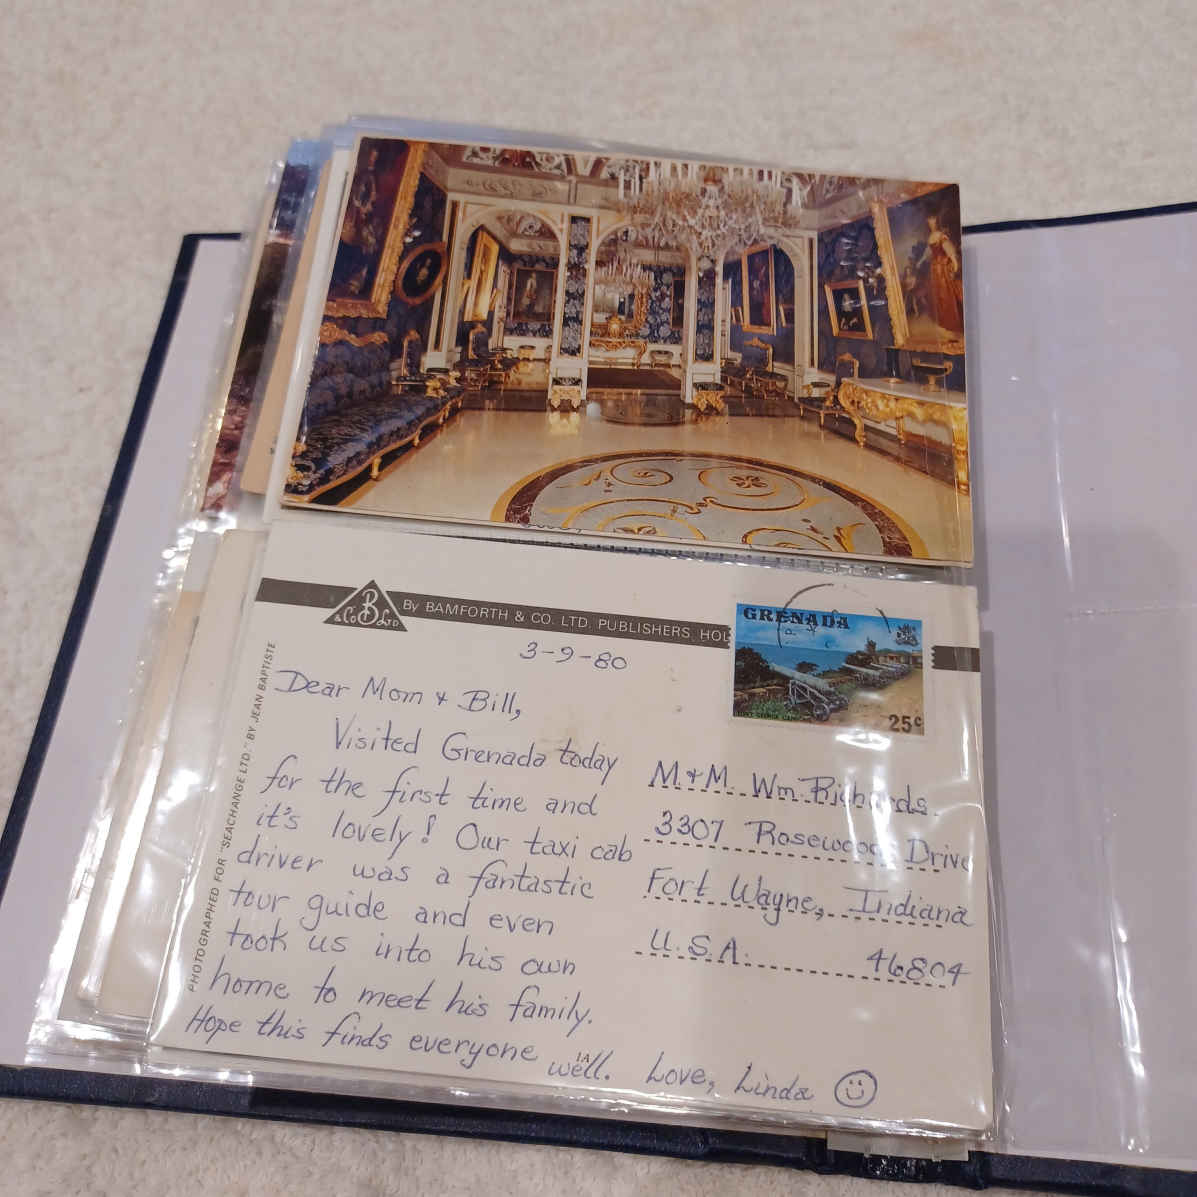 & Co B LTD
By BAMFORTH & CO. LTD. PUBLISHERS, HOL
GRENADA
25¢
3-9-80
Dear Mom & Bill,
Visited Grenada today
for the first time and
it's lovely! Our taxi cab
driver was a fantastic
tour guide and even
took us into his own
home to meet his family.
Hope this finds everyone
well. Love, Linda
1A
M.&M. Wm. Richards
3307 Rosewood Drive
Fort Wayne, Indiana
U.S.A. 46804
PHOTOGRAPHED FOR "SEACHANGE LTD." BY JEAN BAPTISTE